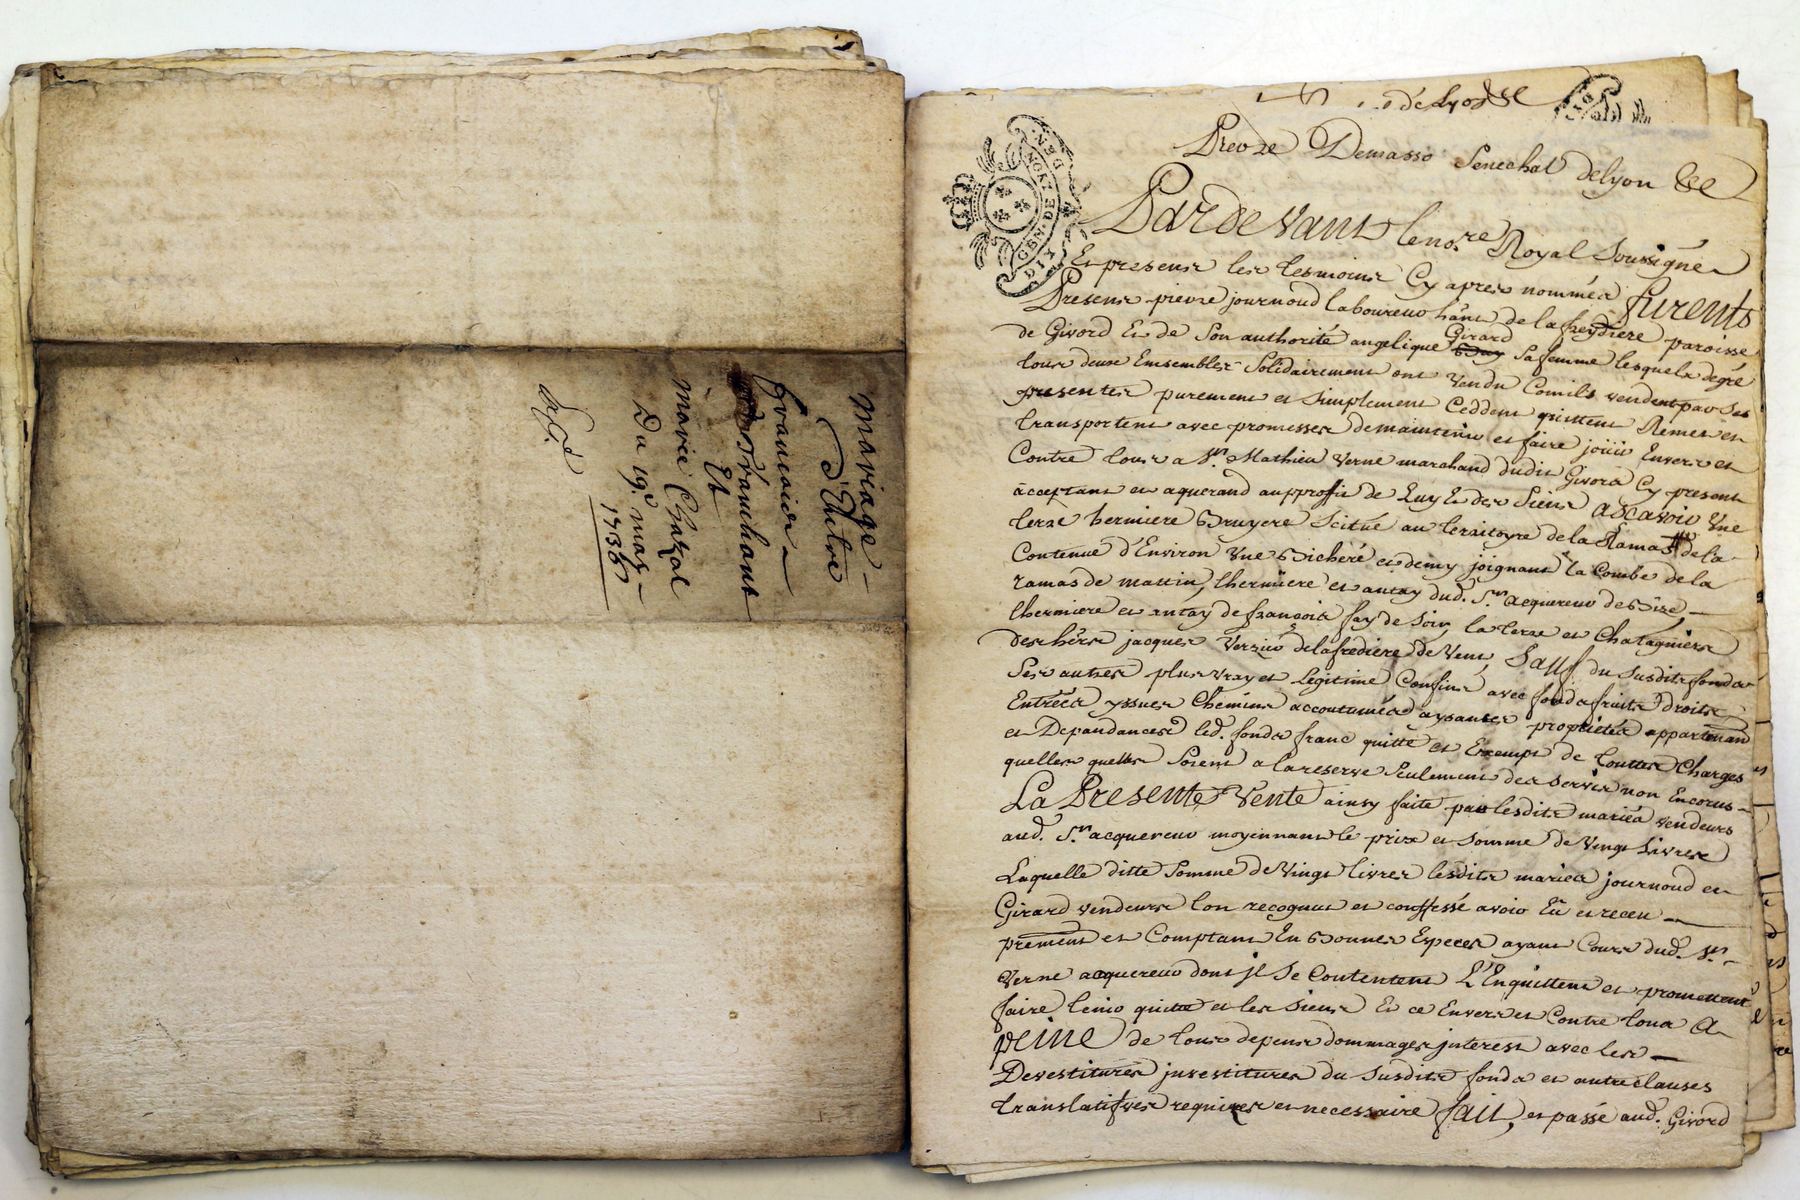 Mariage
D'Entre
françois
Et
Marie Chazal
Du 19e may
1736
Senechal de lyon &c
Par de vant le nore Royal Soussigné
Et presens les tesmoins Cy apres nommés furents
Presens pierre journoud laboureur hânt de la freydiere paroisse
de Givord Et de Son authorité angelique Girard Sa femme lesquels de gré
tous deux Emsembles Solidairement ont Vendu Comils vendent par ses
presentes purement et simplement Ceddent quittent Remet et
transportent avec promesses de maintenir et faire joüir Envers et
Contre tous a Sr. Mathieu Verne marchand dudit Givord Cy present
acceptant et aquerand au proffit de Luy Et des Siens ascavoir Une
terre hermiere Bruyere Scitué au teraitoyre de la Ramas de la
Contenue d'Environ Vne Bicheré et demy joignant la Combe de la
ramas de mattin, lhermiere et antay dud. Sr. acquereur de Bize,
lhermiere et antay de françois fay de Soir, la terre et Chatagniers
des hërs jacques Verzieu de la frediere de Vent, Sauf du Susdits fonds
Ses autres plus vray et Legitime Confins avec fonds fruits droits
Entrées yssues Chemins accoutumées aysances proprietés appartenan
et Dependances led. fonds franc quitte et Exempt de touttes Charges
quelles quelles Soient a la reserve Seulement des servis non Encorus
La Presente Vente ainsy faite par lesdits mariés vendeurs
aud. Sr. acquereur moyennant le prix et somme de Vingt Livres
Laquelle ditte Somme de Vingt livres lesdits mariés journoud et
Girard vendeurs lon recognus et conffessé avoir Eü et receu
prement et Comptant En Bonnes Especes ayant Cours dud. Sr.
Verne acquereur dont jl Se Contentent L'Enquittent et promettent
faire tenir quitte et les siens Et ce Envers et Contre tous A
peine de tous depens dommages jnterest avec les
Devestitures jnvestitures du Susdits fonds et autre clauses
translatifves requises et necessaire fait, et passé aud. Givord